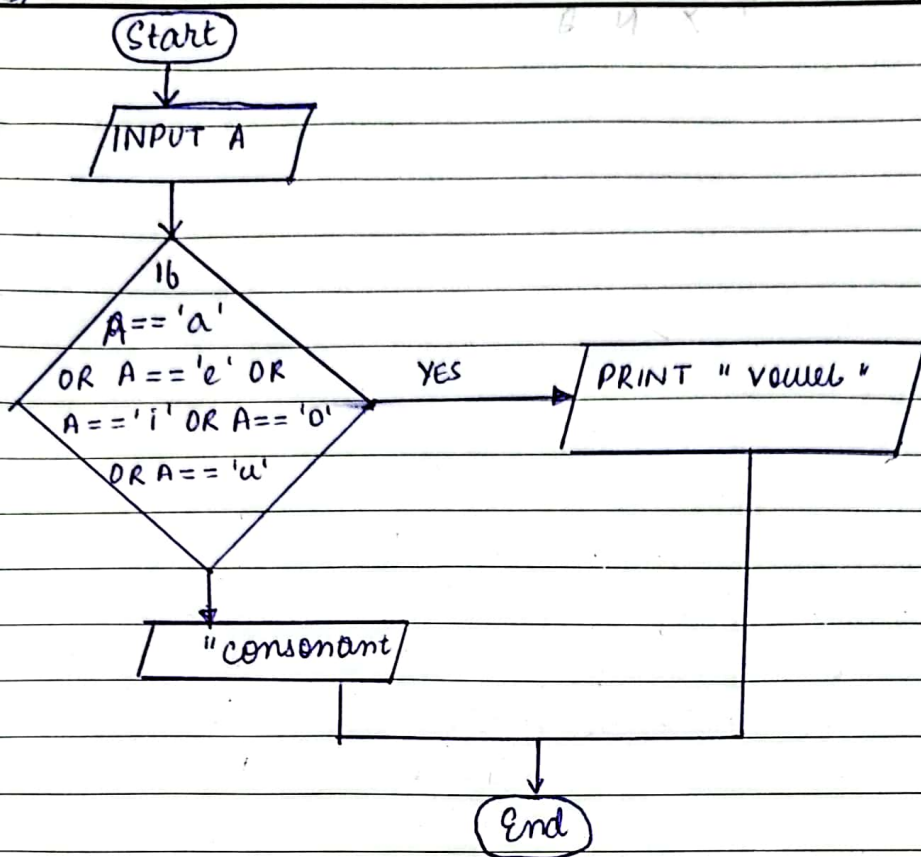 Start
INPUT A
if
A== 'a'
OR A == 'e' OR
A == 'i' OR A== 'o'
OR A == 'u'
YES
PRINT " vowel "
"consonant
End